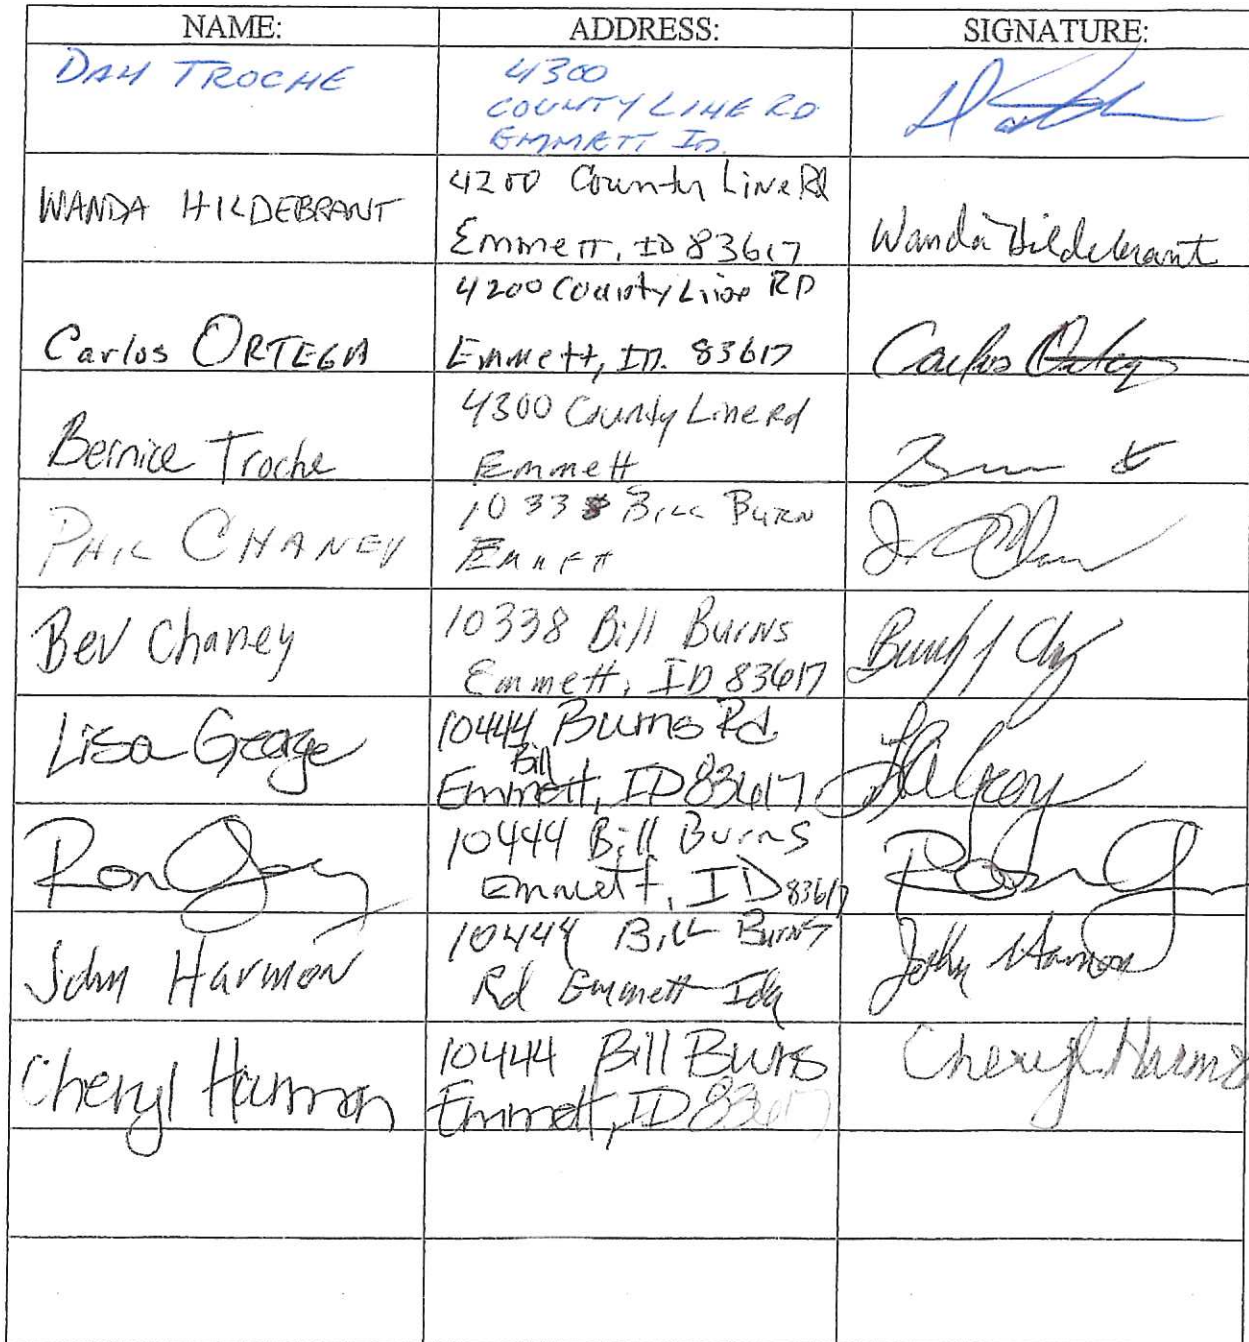 NAME: ADDRESS: SIGNATURE:
DAN TROCHE
4300
COUNTY LINE RD
EMMETT ID.
WANDA HILDEBRANT
4200 County Line Rd
Emmett, ID 83617
Wanda Hildebrant
Carlos ORTEGA
4200 County Line RD
Emmett, ID. 83617
Carlos Ortega
Bernice Troche
4300 County Line Rd
Emmett
PHIL CHANEY
10338 BILL BURN
EMMETT
Bev Chaney
10338 Bill Burns
Emmett, ID 83617
Lisa George
10444 Burns Rd
Bill
Emmett, ID 83617
Ron
10444 Bill Burns
Emmett, ID 83617
John Harmon
10444 Bill Burns
Rd Emmett Ida
John Harmon
Cheryl Harmon
10444 Bill Burns
Emmett, ID 83617
Cheryl Harmon